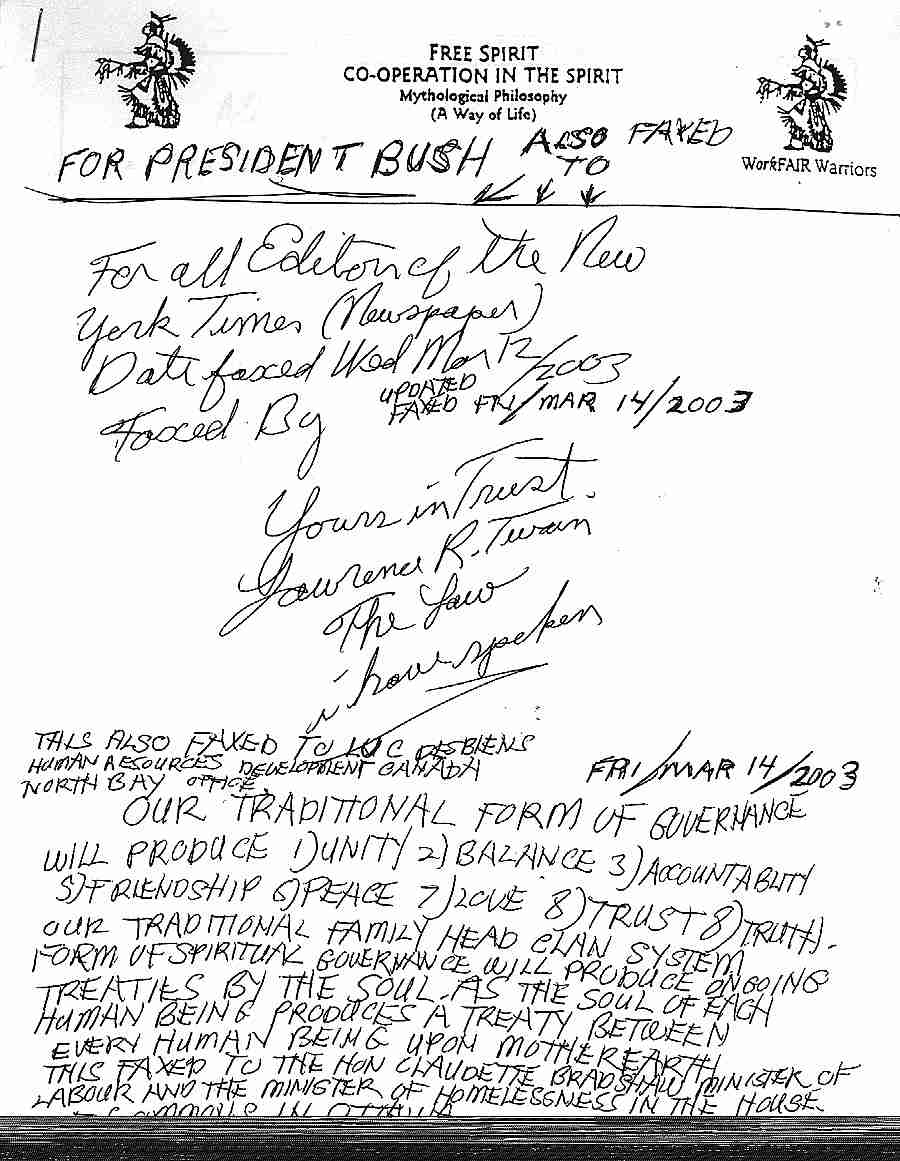 FREE SPIRIT
CO-OPERATION IN THE SPIRIT
Mythological Philosophy
(A Way of Life)
WorkFAIR Warriors
FOR PRESIDENT BUSH ALSO FAXED
TO
For all Editors of the New
York Times (Newspaper)
Date faxed Wed Mar 12/2003
UPDATED
FAXED FRI/MAR 14/2003
Faxed By
Yours in Trust.
Lawrence R. Twain
The Law
i have spoken
THIS ALSO FAXED TO LUC DESBIENS
HUMAN RESOURCES DEVELOPMENT CANADA
NORTH BAY OFFICE
FRI/MAR 14/2003
OUR TRADITIONAL FORM OF GOVERNANCE
WILL PRODUCE 1)UNITY 2)BALANCE 3)ACCOUNTABLITY
5)FRIENDSHIP 6)PEACE 7)LOVE 8)TRUST 8)TRUTH.
OUR TRADITIONAL FAMILY HEAD CLAN SYSTEM
FORM OF SPIRITUAL GOVERNANCE WILL PRODUCE ONGOING
TREATIES BY THE SOUL. AS THE SOUL OF EACH
HUMAN BEING PRODUCES A TREATY BETWEEN
EVERY HUMAN BEING UPON MOTHER EARTH
THIS FAXED TO THE HON CLAUDETTE BRADSHAW MINISTER OF
LABOUR AND THE MINISTER OF HOMELESSNESS IN THE HOUSE.
COMMONS IN OTTAWA